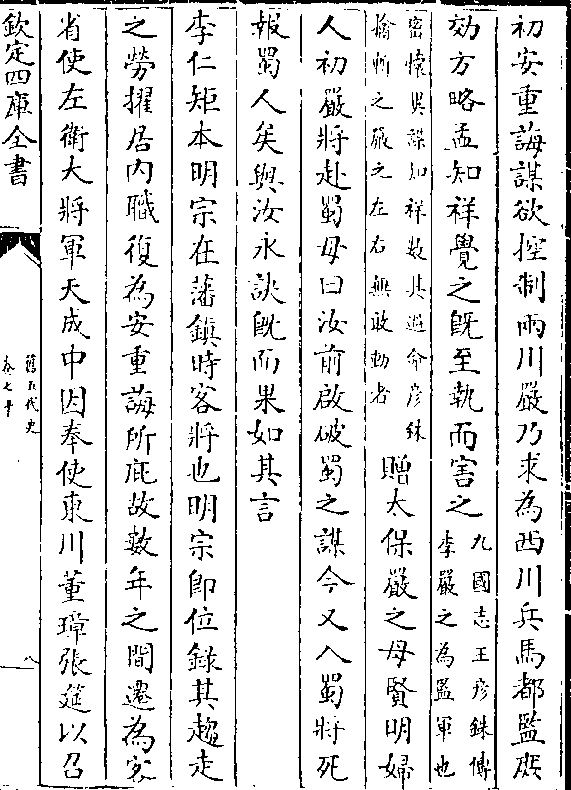 初安重誨謀欲控制兩川嚴乃求為西川兵馬都監庶
効方略孟知祥覺之既至執而害之九國志王彦銖傳李嚴之為監軍也
密懷異謀知祥數其過命彦銖擒斬之嚴之左右無敢動者贈太保嚴之母賢明婦
人初嚴將赴蜀母曰汝前啟破蜀之謀今又入蜀將死
報蜀人矣與汝永訣既而果如其言
李仁矩本明宗在藩鎮時客將也明宗即位錄其趨走
之勞擢居内職復為安重誨所庇故數年之間遷為客
省使左衛大將軍天成中因奉使東川董璋張筵以召
欽定四庫全書
舊五代史
卷七十
八